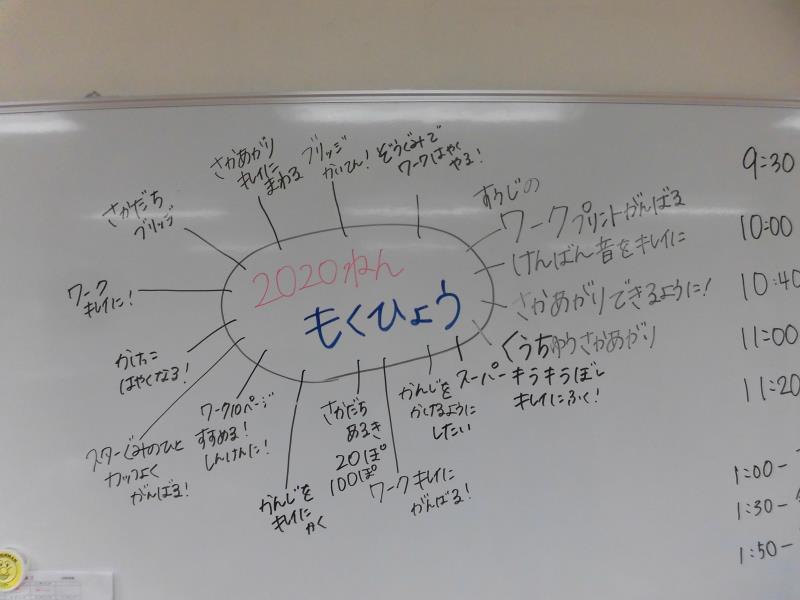 2020ねん
もくひょう
さかあがり
キレイに
まわる
ブリッジ
かいひん!
ぞうぐみで
ワークはやく
やる!
すうじの
ワークプリントがんばる
けんばん音をキレイに
さかあがりできるように!
くうちゅうさかあがり
スーパーキラキラぼし
キレイにふく!
かんじを
かけるように
したい
ワークキレイに
がんばる!
さかだち
あるき
20ぽ
100ぽ
かんじを
キレイに
かく
ワーク10ページ
すすめる!
しんけんに!
スターぐみのひと
カッコよく
がんばる!
かけっこ
はやくなる!
ワーク
キレイに!
さかだち
ブリッジ
9:30
10:00
10:40
11:00
11:20
1:00-
1:30-
1:50-